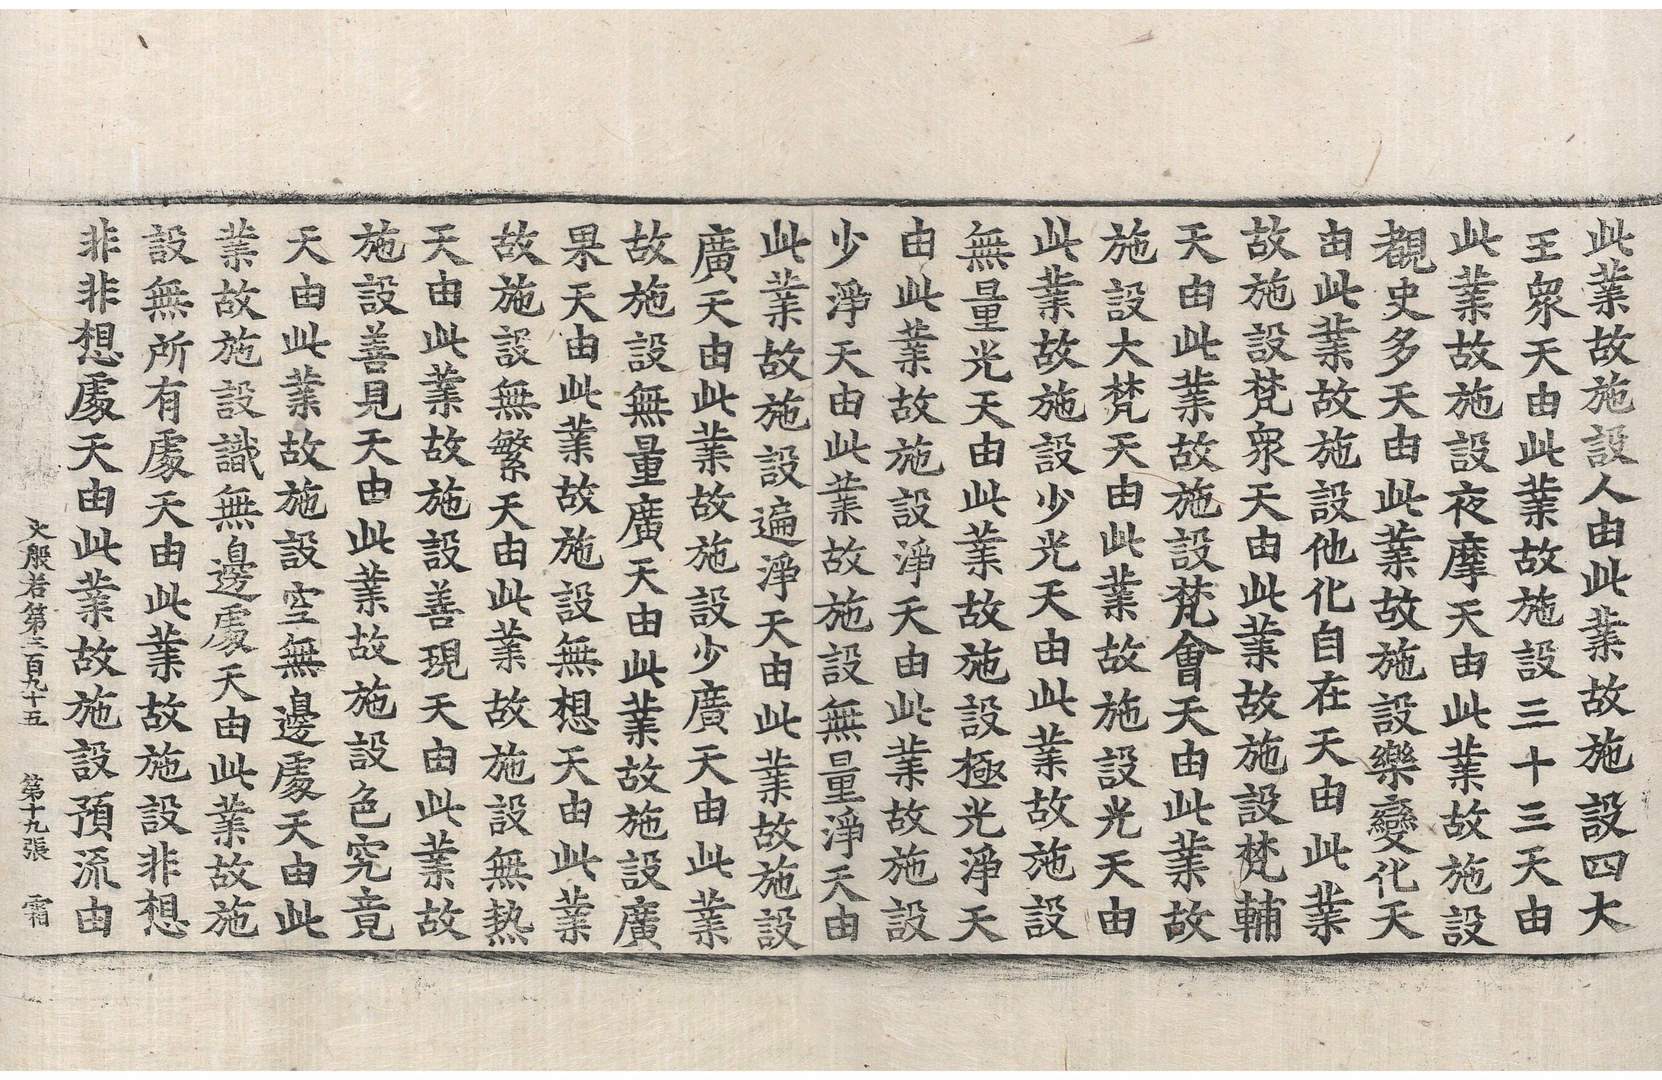 此業故施設人由此業故施設四大
王眾天由此業故施設三十三天由
此業故施設夜摩天由此業故施設
覩史多天由此業故施設樂變化天
由此業故施設他化自在天由此業
故施設梵眾天由此業故施設梵輔
天由此業故施設梵會天由此業故
施設大梵天由此業故施設光天由
此業故施設少光天由此業故施設
無量光天由此業故施設極光淨天
由此業故施設淨天由此業故施設
少淨天由此業故施設無量淨天由
此業故施設遍淨天由此業故施設
廣天由此業故施設少廣天由此業
故施設無量廣天由此業故施設廣
果天由此業故施設無想天由此業
故施設無繁天由此業故施設無熱
天由此業故施設善現天由此業故
施設善見天由此業故施設色究竟
天由此業故施設空無邊處天由此
業故施設識無邊處天由此業故施
設無所有處天由此業故施設非想
非非想處天由此業故施設預流由
大般若第三百九十五 第十九張 霜